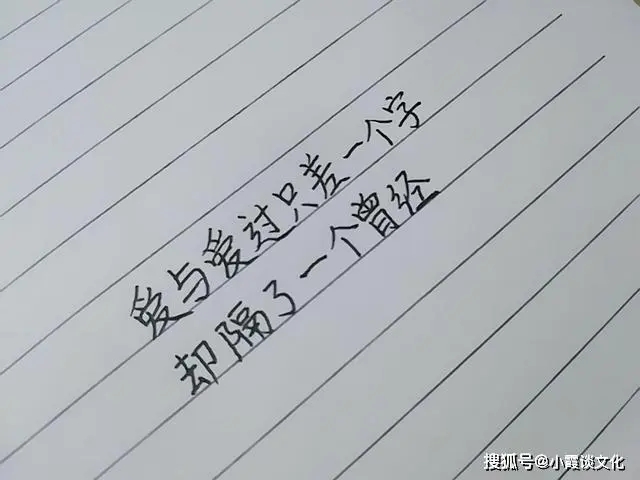 爱与爱过只差一个字
却隔了一个曾经
搜狐号@小霞谈文化